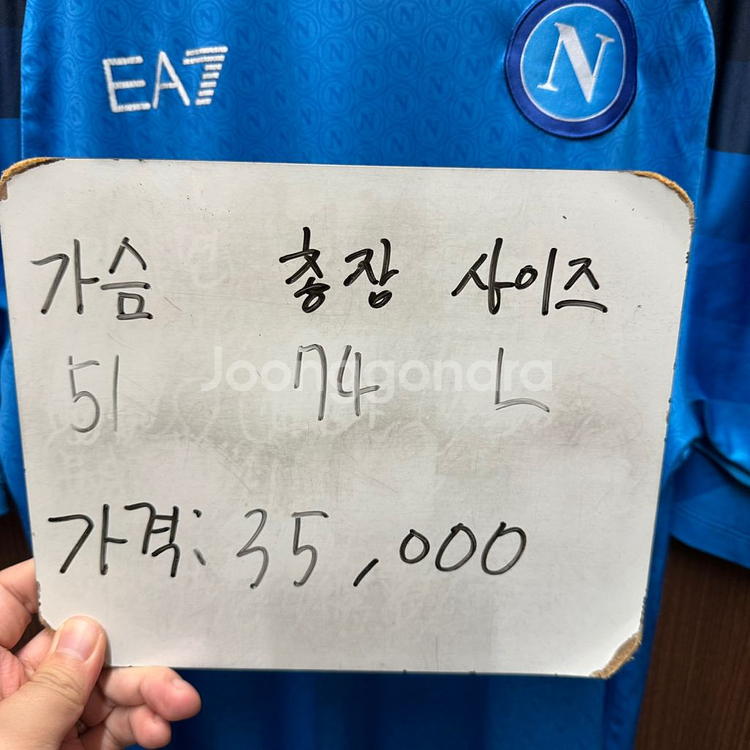 EA7
N
가슴 총장 사이즈
51 74 L
Joongonara
가격: 35,000